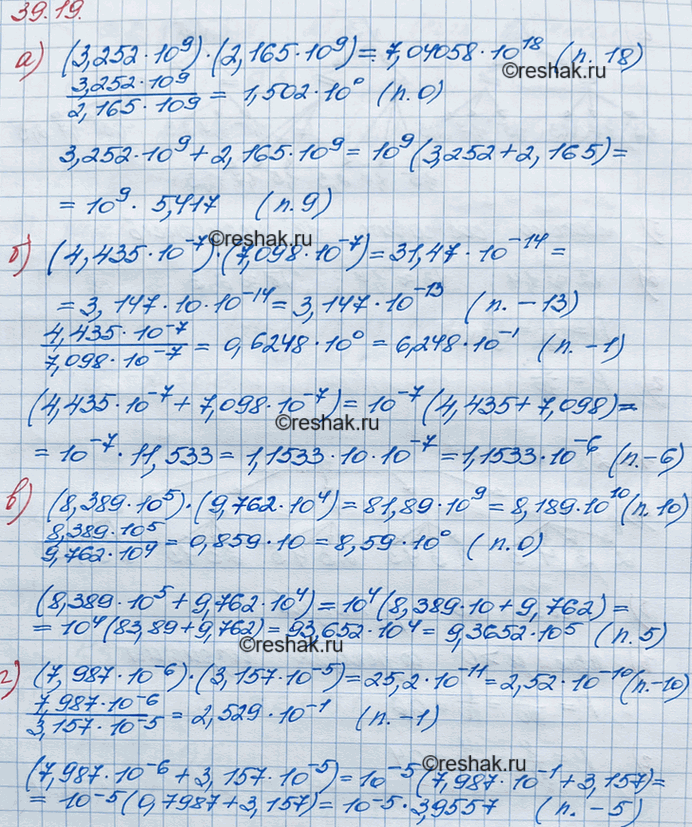 39.19.
а) (3,252·10⁹)·(2,165·10⁹)=7,04058·10¹⁸ (п. 18)
©reshak.ru
3,252·10⁹/2,165·10⁹ = 1,502·10⁰ (п.0)
3,252·10⁹+2,165·10⁹=10⁹(3,252+2,165)=
=10⁹·5,417 (п.9)
©reshak.ru
б) (4,435·10⁻⁷)·(7,098·10⁻⁷)=31,47·10⁻¹⁴=
=3,147·10·10⁻¹⁴=3,147·10⁻¹³ (п.-13)
4,435·10⁻⁷/7,098·10⁻⁷ = 0,6248·10⁰=6,248·10⁻¹ (п.-1)
(4,435·10⁻⁷+7,098·10⁻⁷)=10⁻⁷(4,435+7,098)=
©reshak.ru
=10⁻⁷·11,533=1,1533·10·10⁻⁷=1,1533·10⁻⁶ (п.-6)
в) (8,389·10⁵)·(9,762·10⁴)=81,89·10⁹=8,189·10¹⁰(п.10)
8,389·10⁵/9,762·10⁴ = 0,859·10=8,59·10⁰ (п.0)
(8,389·10⁵+9,762·10⁴)=10⁴(8,389·10+9,762)=
=10⁴(83,89+9,762)=93,652·10⁴=9,3652·10⁵ (п.5)
©reshak.ru
г) (7,987·10⁻⁶)·(3,157·10⁻⁵)=25,2·10⁻¹¹=2,52·10⁻¹⁰(п.-10)
7,987·10⁻⁶/3,157·10⁻⁵ = 2,529·10⁻¹ (п.-1)
©reshak.ru
(7,987·10⁻⁶+3,157·10⁻⁵)=10⁻⁵(7,987·10⁻¹+3,157)=
=10⁻⁵(0,7987+3,157)=10⁻⁵·3,9557 (п.-5)